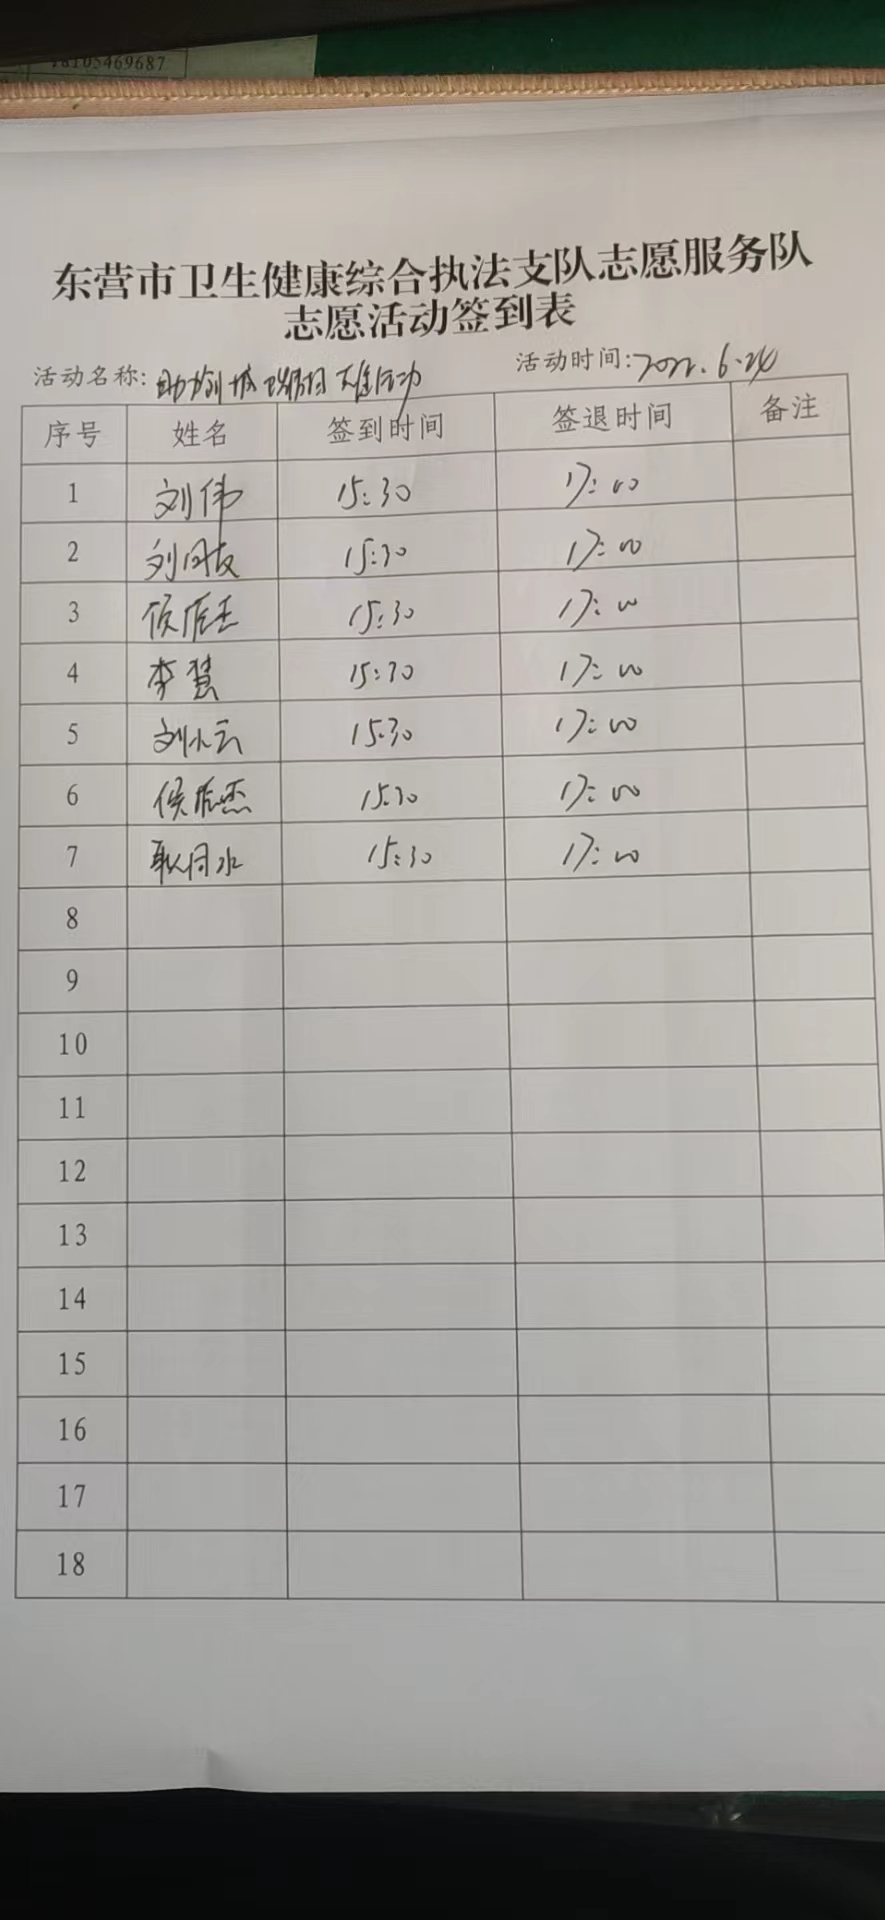 18105469687
东营市卫生健康综合执法支队志愿服务队
志愿活动签到表
活动名称: 助力创城 活动 活动时间: 2022.6.24
序号 姓名 签到时间 签退时间 备注
1 刘伟 15:30 17:00
2 刘 15:30 17:00
3 侯 15:30 17:00
4 李慧 15:30 17:00
5 刘小云 15:30 17:00
6 侯 杰 15:30 17:00
7 耿 水 15:30 17:00
8
9
10
11
12
13
14
15
16
17
18